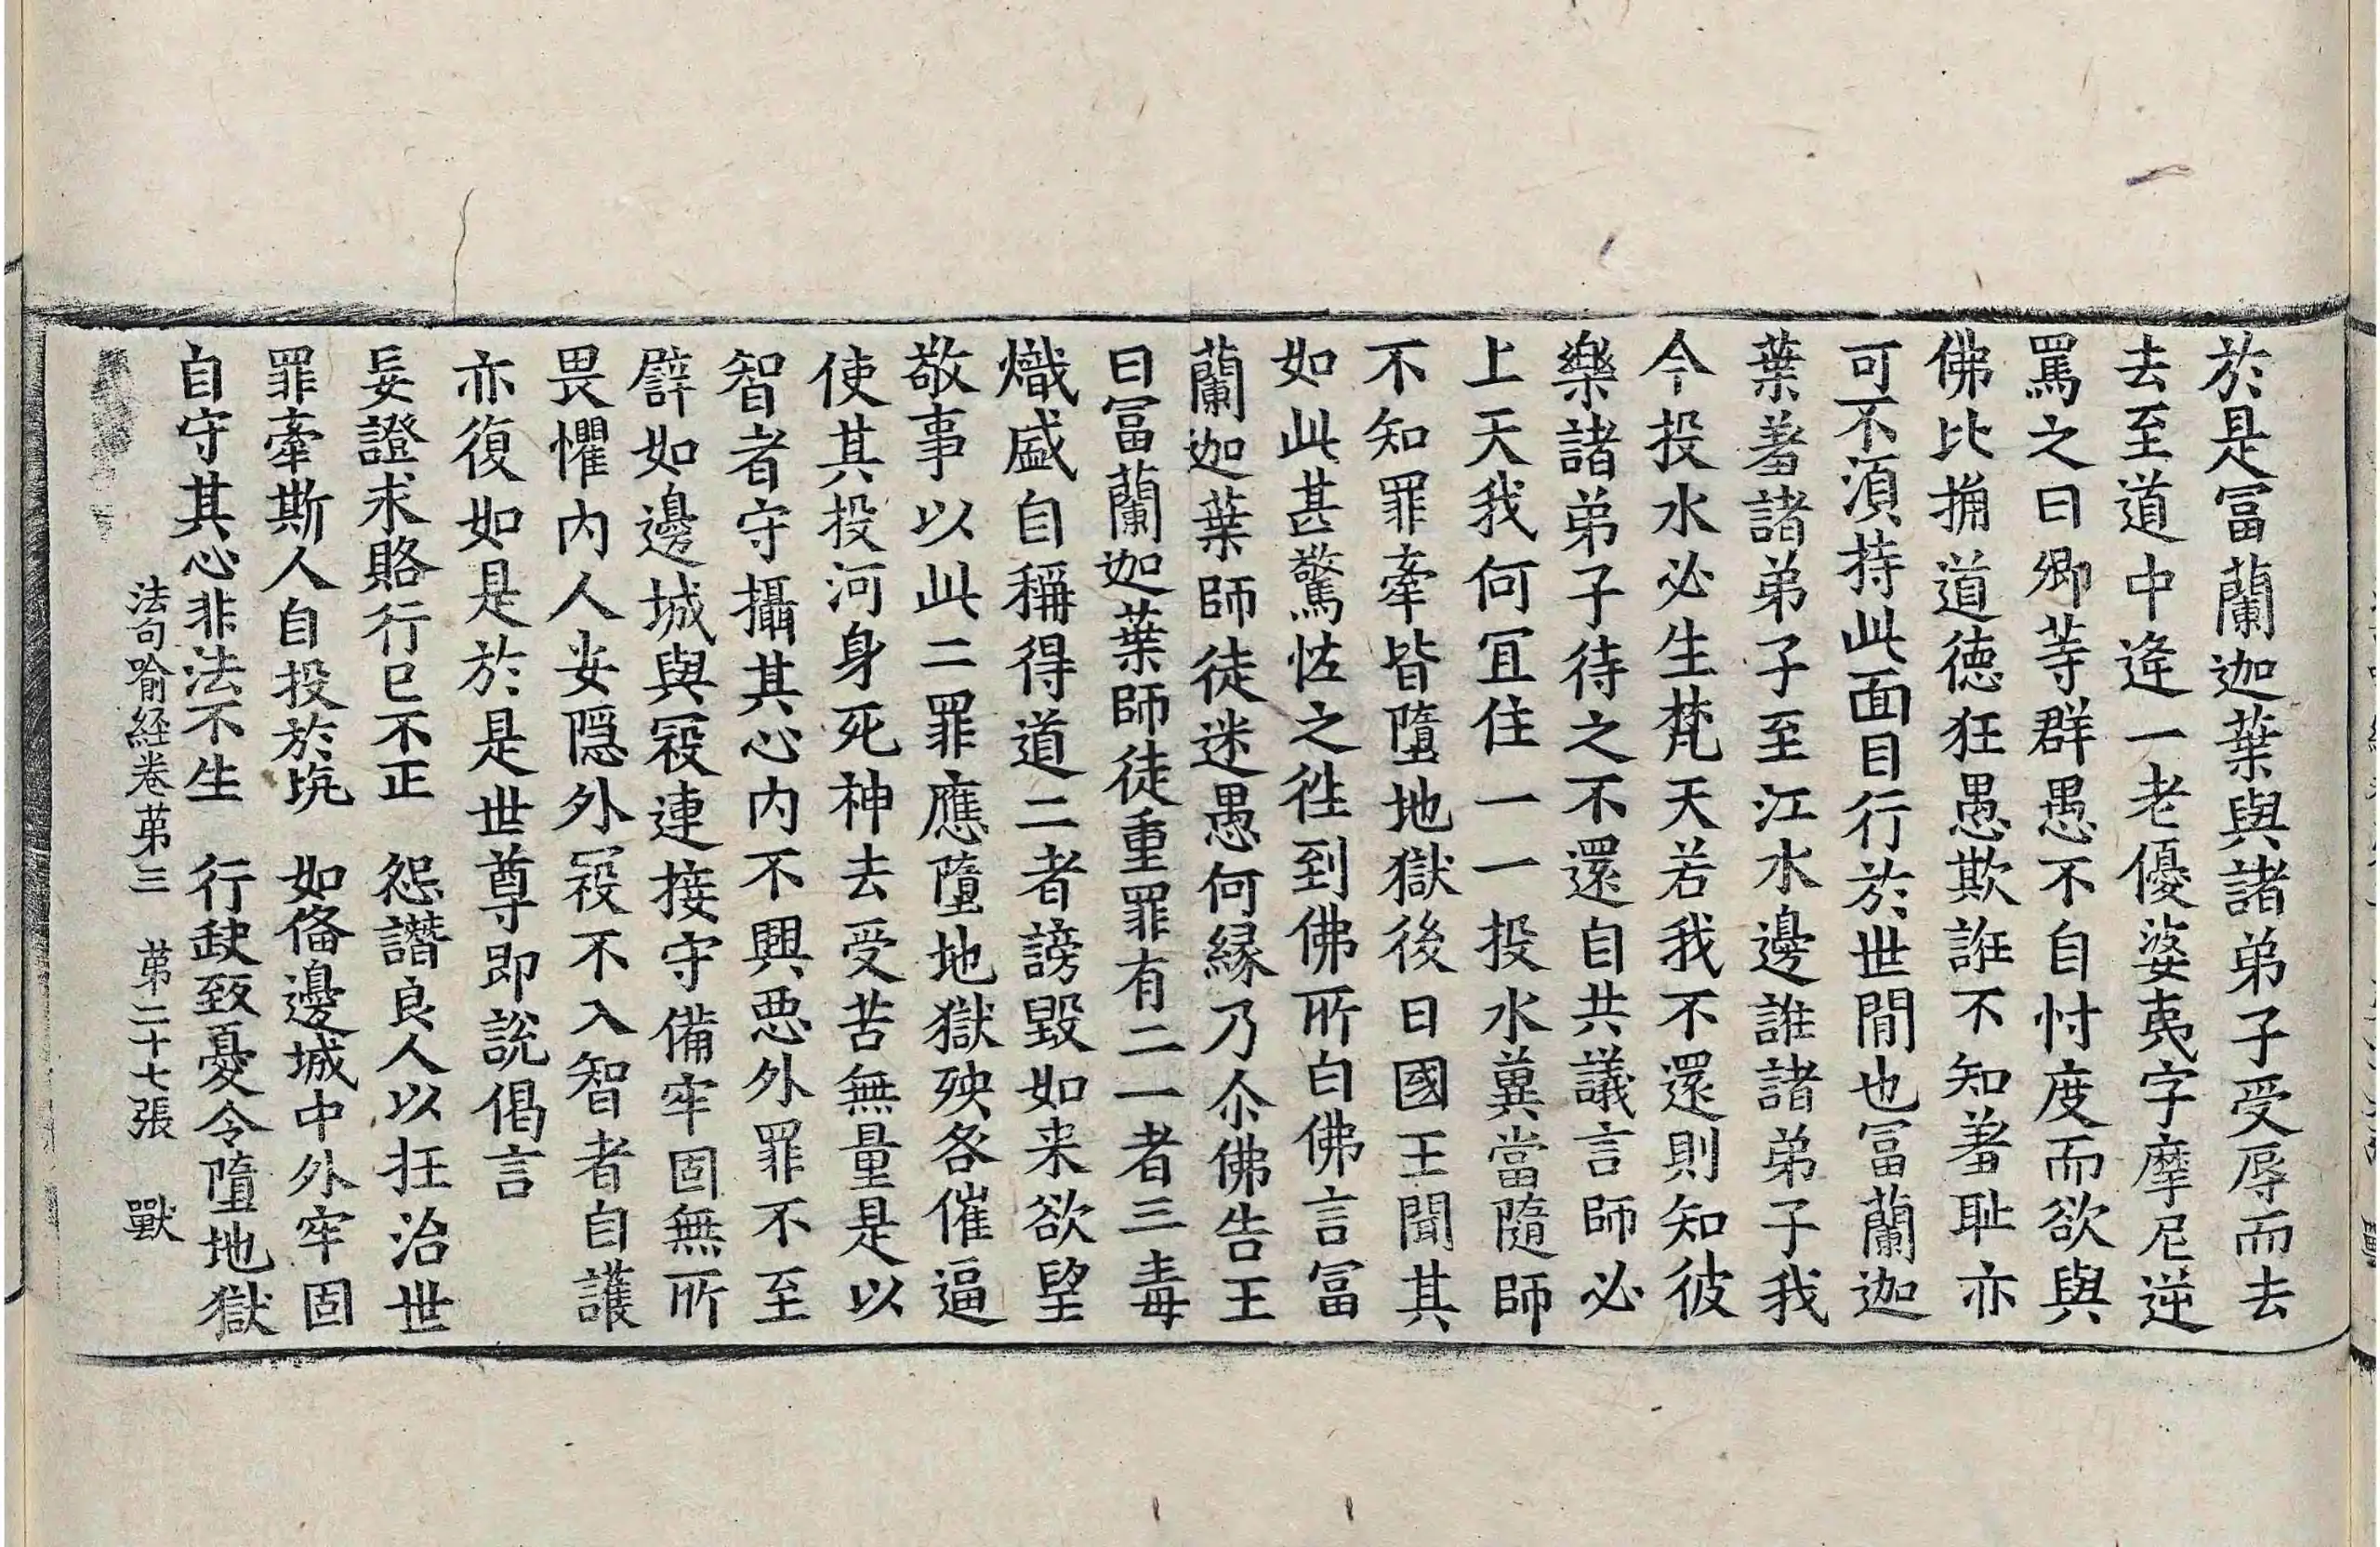 於是冨蘭迦葉與諸弟子受辱而去
去至道中逄一老優婆夷字摩尼逆
罵之曰卿等群愚不自忖度而欲與
佛比捔道德狂愚欺誑不知羞耻亦
可不湏持此面目行於世間也冨蘭迦
葉羞諸弟子至江水邊誑諸弟子我
今投水必生梵天若我不還則知彼
樂諸弟子待之不還自共議言師必
上天我何冝住一一投水冀當隨師
不知罪牽皆墮地獄後日國王聞其
如此甚驚恠之徃到佛所白佛言冨
蘭迦葉師徒迷愚何縁乃尒佛告王
曰冨蘭迦葉師徒重罪有二一者三毒
熾盛自稱得道二者謗毀如来欲望
敬事以此二罪應墮地獄殃各催逼
使其投河身死神去受苦無量是以
智者守攝其心内不興惡外罪不至
譬如邊城與寇連接守備牢固無所
畏懼内人安隠外寇不入智者自護
亦復如是於是世尊即說偈言
妄證求賂行已不正　怨譖良人以抂治世
罪牽斯人自投於坑　如俻邊城中外牢固
自守其心非法不生　行缺致憂令墮地獄
法句喻經卷苐三　苐二十七張　獸